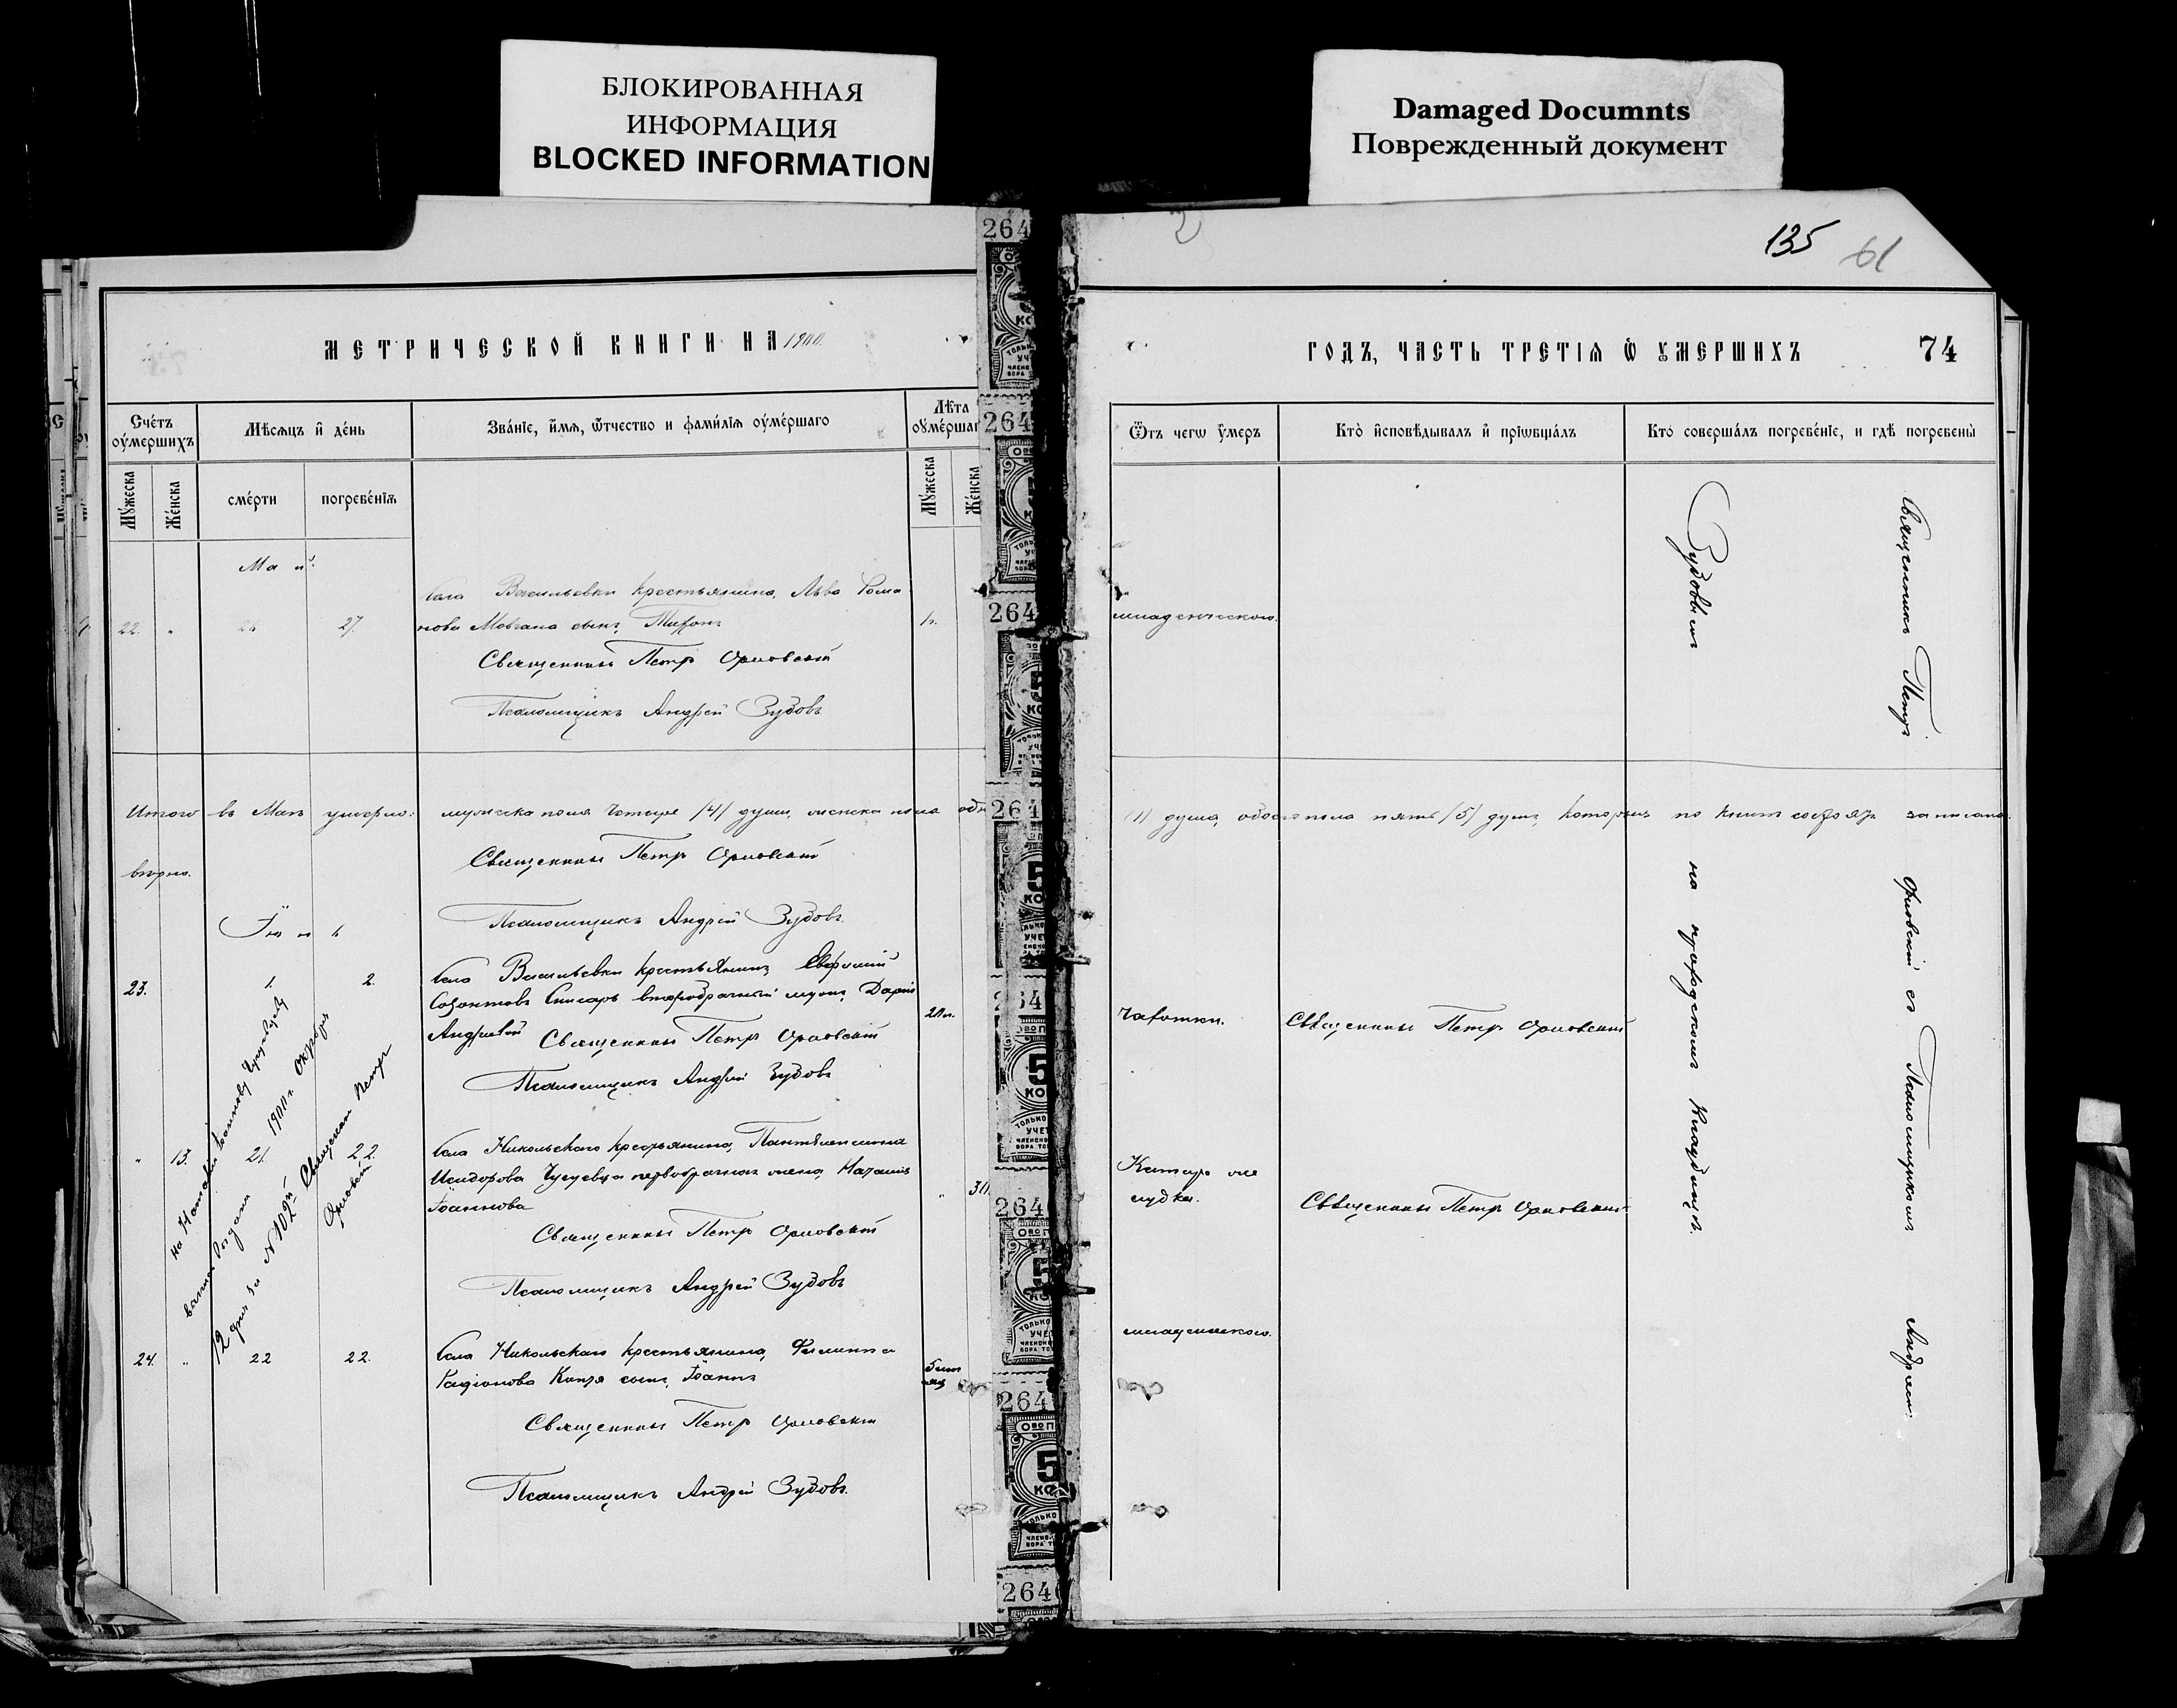 БЛОКИРОВАННАЯ
ИНФОРМАЦИЯ
BLOCKED INFORMATION
Damaged Documnts
Поврежденный документ
135 61
МЕТРИЧЕСКОЙ КНИГИ НА 1900
Счетъ оумершихъ
Мѣсяцъ и день
Званіе, имя, отчество и фамилія оумершаго
Лѣта
Мужеска
Женска
смерти
погребенія
Мужеска
Женска
Май
22. " 27.
Села Васильевки крестьянина, Льва Рома
нова Мовчана сынъ, Тихонъ
Священникъ Петръ Орловскій
Псаломщикъ Андрей Зубовъ
Итого въ Маѣ умерло: мужеска пола четыре /4/ души, женска пола
Священникъ Петръ Орловскій
вѣрно.
Псаломщикъ Андрей Зубовъ.
Іюнь
23. 1. 2.
Села Васильевки крестьянинъ
второбрачный мужъ, Даріи
Андреевой
Священникъ Петръ Орловскій
Псаломщикъ Андрей Зубовъ
" 13. 21. 22.
Села Никольскаго крестьянина, Пантелеимона
Исидорова первобрачная жена, Наталія
Іоаннова
" 30.
Священникъ Петръ Орловскій
Псаломщикъ Андрей Зубовъ
1900 г. Октября
12 дня за № 102й Священникъ Петръ
Орловскій
24. " 22 22.
Села Никольскаго крестьянина, Филиппа
Радіонова сынъ, Іоаннъ
Священникъ Петръ Орловскій
Псаломщикъ Андрей Зубовъ.
264
264
264
264
264
264
264
264
ГОДЪ, ЧАСТЬ ТРЕТІЯ Ѡ УМЕРШИХЪ 74
Отъ чего умеръ
Кто исповѣдывалъ и пріобщалъ
Кто совершалъ погребеніе, и гдѣ погребены
младенческою.
Священникъ Петръ
Зубовымъ
/1/ душа, обоего пола пять /5/ душъ,
Орловскій съ Псаломщикомъ
Андреемъ
на приходскомъ кладбищѣ.
чахотки.
Священникъ Петръ Орловскій
Катаръ же
лудка.
Священникъ Петръ Орловскій
младенческою.